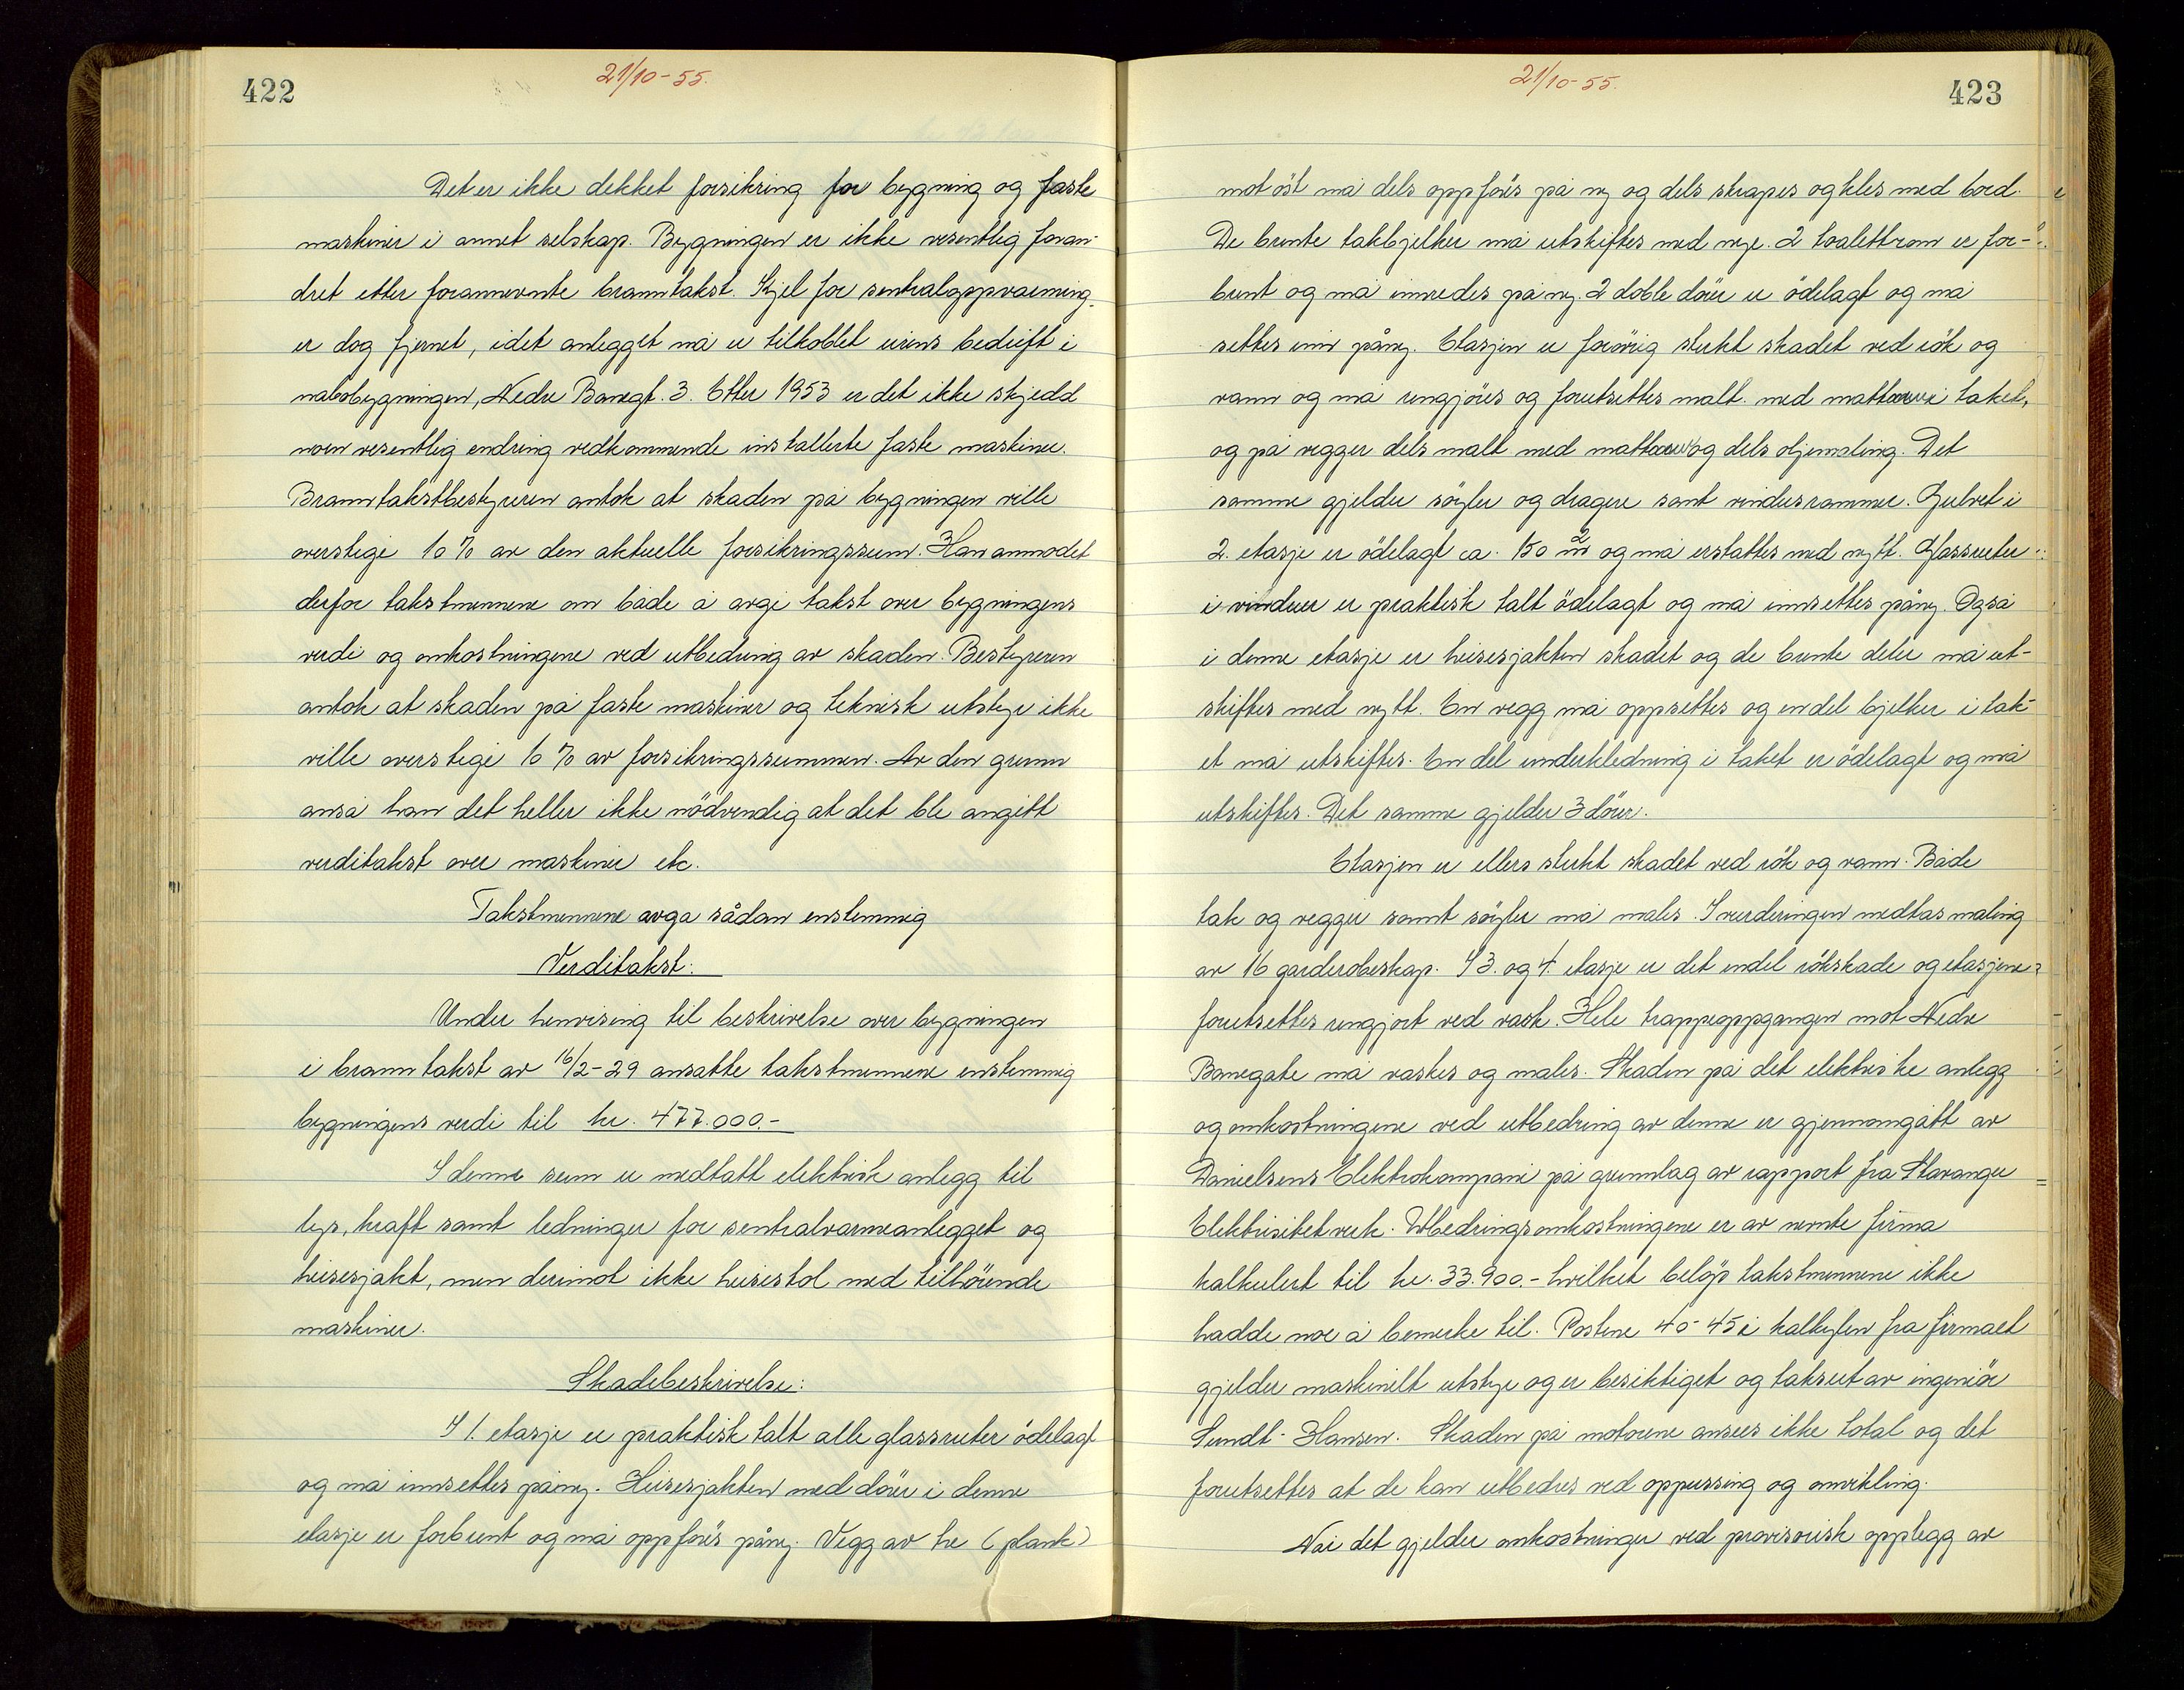 422
21/10-55.
Det er ikke dekket forsikring for bygning og faste
maskiner i annet selskap. Bygningen er ikke vesentlig foran-
dret etter forannevnte branntakst. Kjel for sentraloppvarming
er dog fjernet, idet anlegget nå er tilkoblet eiens bedrift i
nabobygningen, Nedre Banegt. 3. Etter 1953 er det ikke skjedd
noen vesentlig endring vedkommende installerte faste maskiner.
Branntakstbestyreren antok at skaden på bygningen ville
overstige 10 % av den aktuelle forsikringssum. Han anmodet
derfor takstmennene om både å avgi takst over bygningens
verdi og omkostningene ved utbedring av skaden. Bestyreren
antok at skaden på faste maskiner og teknisk utstyr ikke
ville overstige 10 % av forsikringssummen. Av den grunn
anså han det heller ikke nödvendig at det ble angitt
verditakst over maskiner etc.
Takstmennene avga sådan enstemmig
Verditakst:
Under henvising til beskrivelse over bygningen
i branntakst av 16/2-29 ansatte takstmennene enstemmig
bygningens verdi til kr. 477.000.-
I denne sum er medtatt elektrisk anlegg til
lys, kraft samt ledninger for sentralvarmeanlegget og
heisesjakt, men derimot ikke heisestol med tilhörende
maskiner.
Skadebeskrivelse:
I 1. etasje er praktisk talt alle glassruter ödelagt
og må innsettes påny. Heisesjakten med dörer i denne
etasje er forbrent og må oppföres påny. Vegg av tre (plank)
423
21/10-55.
mot öst må dels oppföres på ny og dels skrapes og kles med bord.
De brente takbjelker må utskiftes med nye. 2 toalettrom er for-
brent og må innredes på ny. 2 doble dörer er ödelagt og må
settes inn påny. Etasjen er forövrig sterkt skadet ved rök og
vann og må rengjöres og forutsettes malt med mattcurve i taket,
og på vegger dels malt med og dels oljemaling. Det
samme gjelder söyler og dragere samt vindusrammer. Gulvet i
2. etasje er ödelagt ca. 150 m2 og må erstattes med nytt. Glassruter
i vinduer er praktisk talt ödelagt og må innsettes påny. Også
i denne etasje er heisesjakten skadet og de brente deler må ut-
skiftes med nytt. En vegg må oppsettes og en del bjelker i tak-
et må utskiftes. En del underkledning i taket er ödelagt og må
utskiftes. Det samme gjelder 3 dörer.
Etasjen er ellers sterkt skadet ved rök og vann. Både
tak og vegger samt söyler må males. I vurderingen medtas maling
av 16 garderobeskap. I 3. og 4. etasje er det endel rökskade og etasjene
forutsettes rengjort ved vask. Hele trappeoppgangen mot Nedre
Banegate må vaskes og males. Skaden på det elektriske anlegg
og omkostningene ved utbedring av denne er gjennomgått av
Danielsens Elektrokompani på grunnlag av rapport fra Stavanger
Elektrisitetverk. Utbedringsomkostningene er av nevnte firma
kalkulert til kr. 33.900.- hvilket belöp takstmennene ikke
hadde noe å bemerke til. Postene 40-45 i kalkylen fra firmaet
gjelder maskinelt utstyr og er besiktiget og taksert av ingeniör
Sundt-Hansen. Skaden på motorene ansees ikke total og det
forutsettes at de kan utbedres ved oppussing og omvikling.
Når det gjelder omkostninger ved provisorisk opplegg av